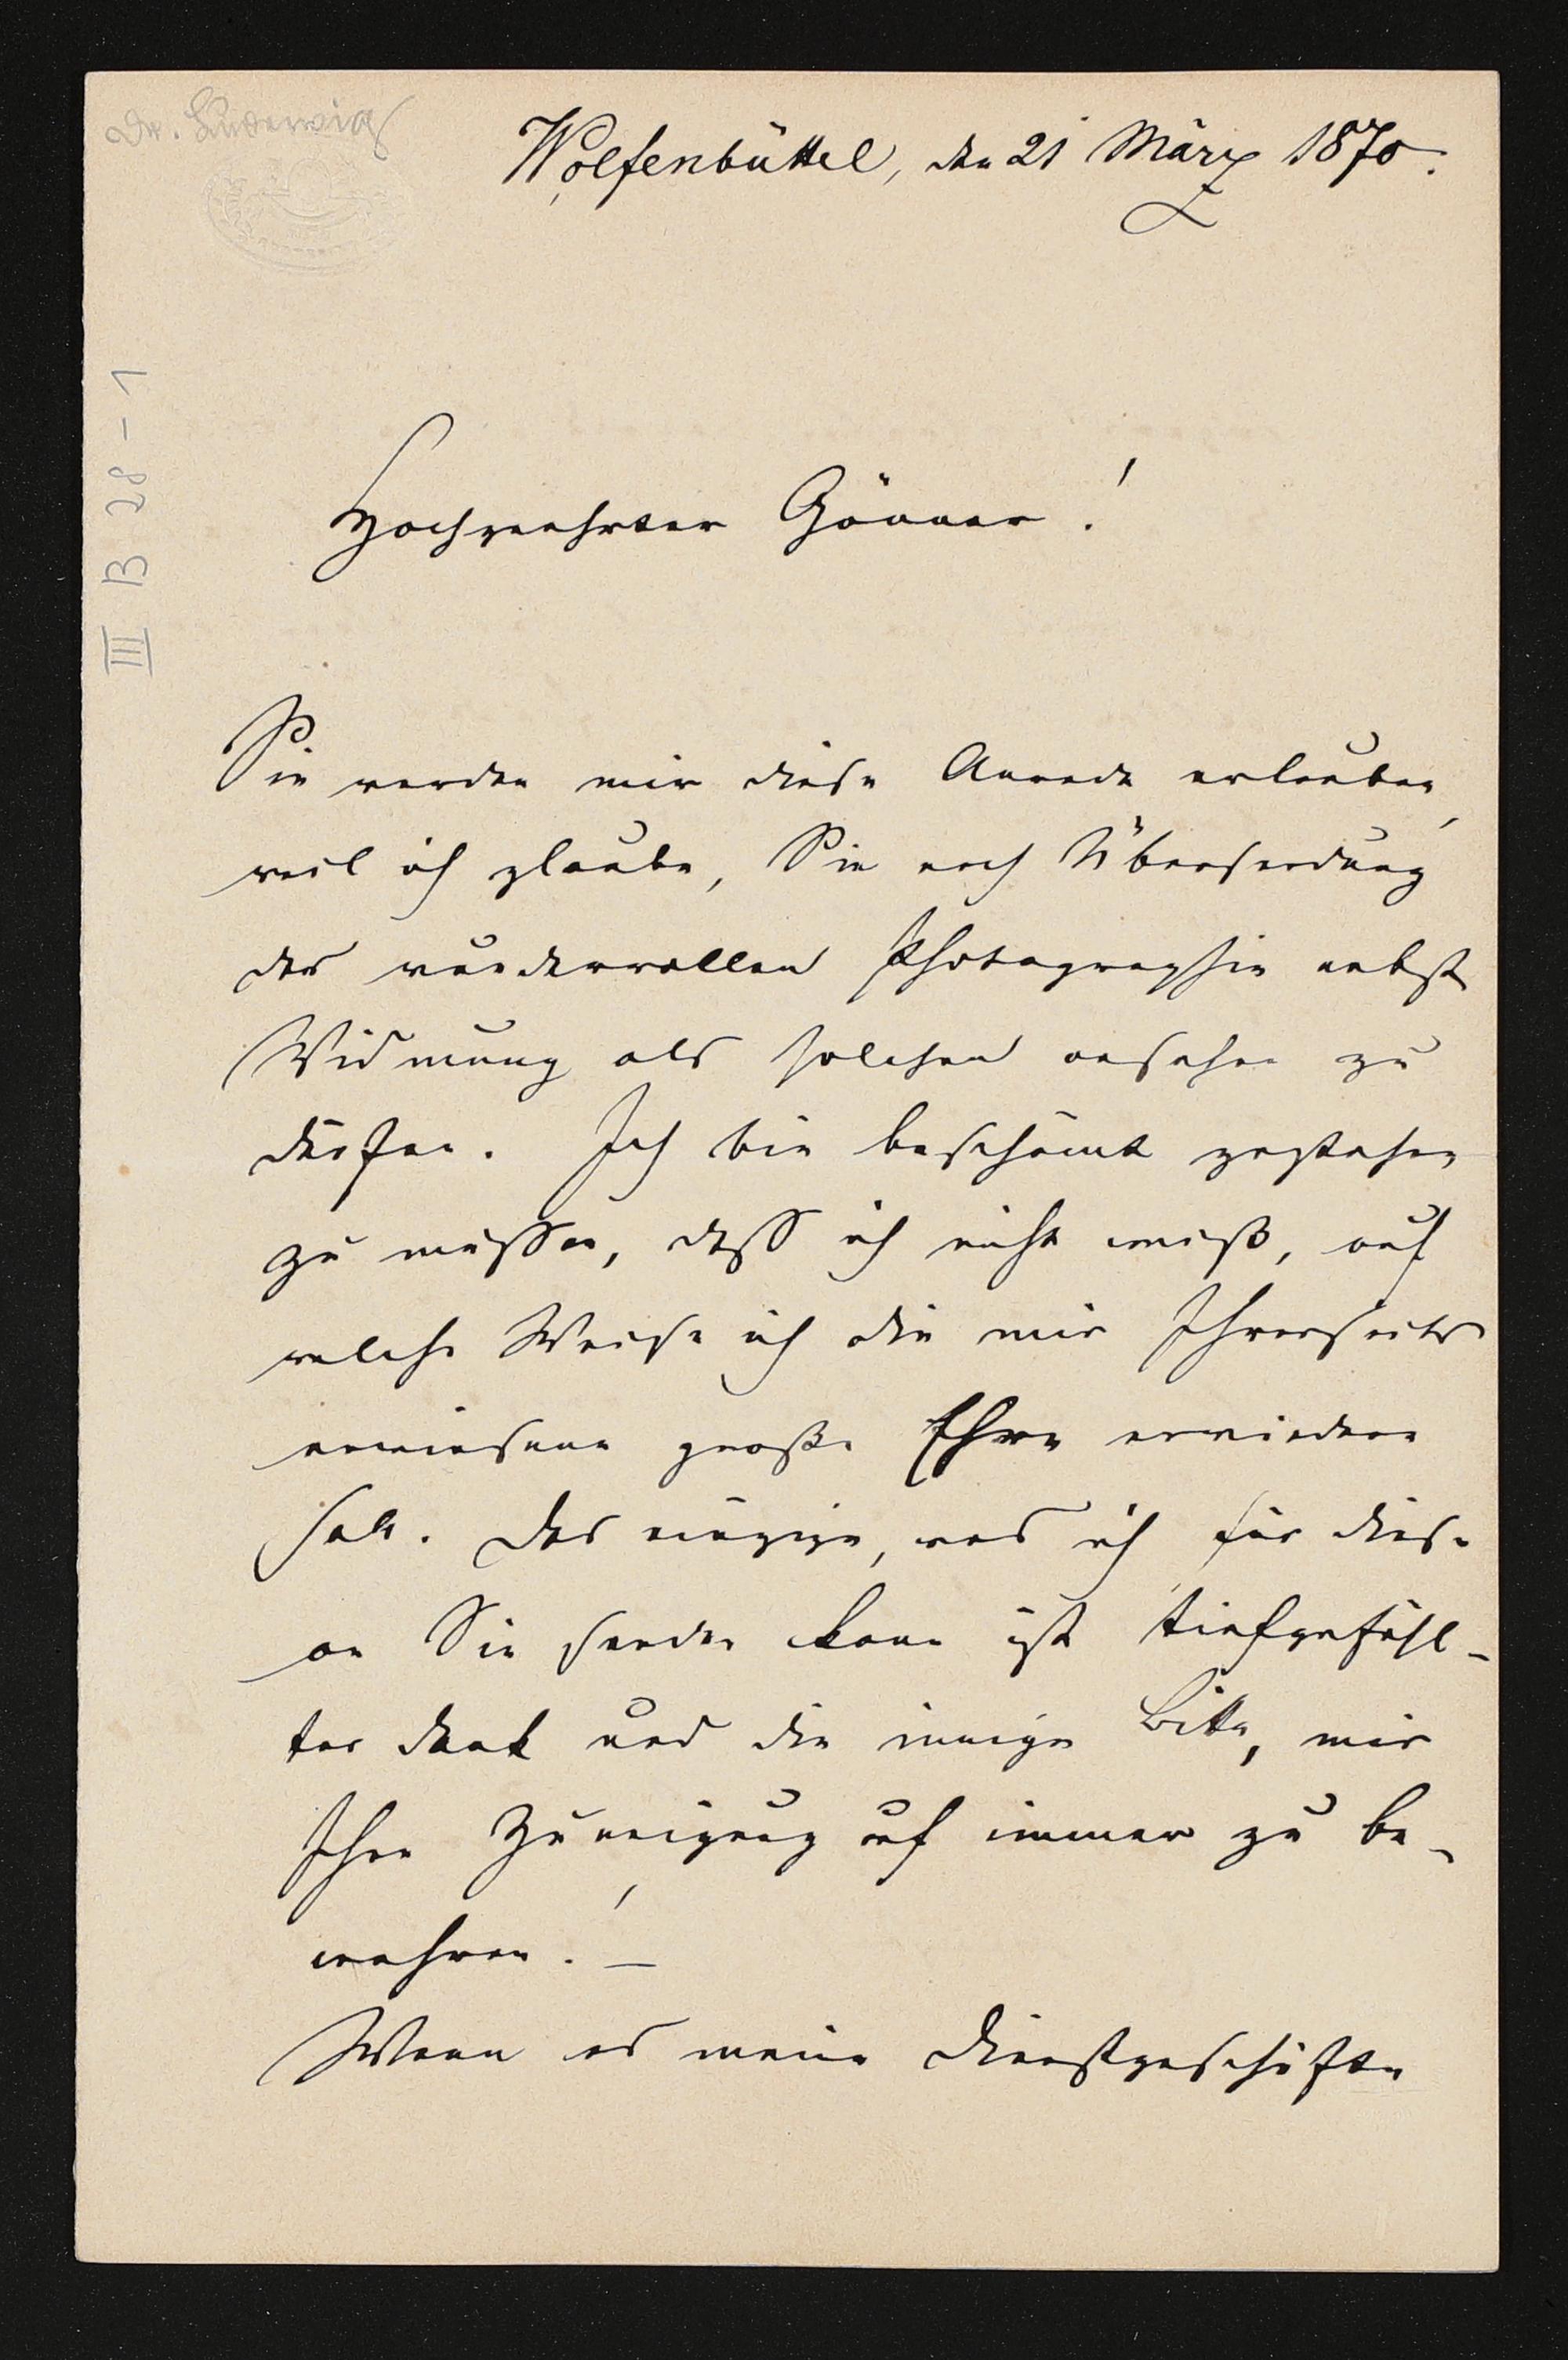 Dr. Luderwig
Wolfenbüttel, den 21 März 1870.
III B 28-1
Hochgeehrter Gönner!
Sie werden mir diese Anrede erlauben,
weil ich glaube, Sie nach Übersendung
der wundervollen Photographie nebst
Widmung als solchen ansehen zu
dürfen. Ich bin beschämt gestehen
zu müssen, dass ich nicht weiß, auf
welche Weise ich die mir Ihrerseits
erwiesene große Ehre erwiedern
soll. Das einzige, was ich für diese
an Sie senden kann ist tiefgefühl-
ter Dank und die innige Bitte, mir
Ihre Zuneigung auf immer zu be-
wahren! –
Wenn es meine Dienstgeschäfte